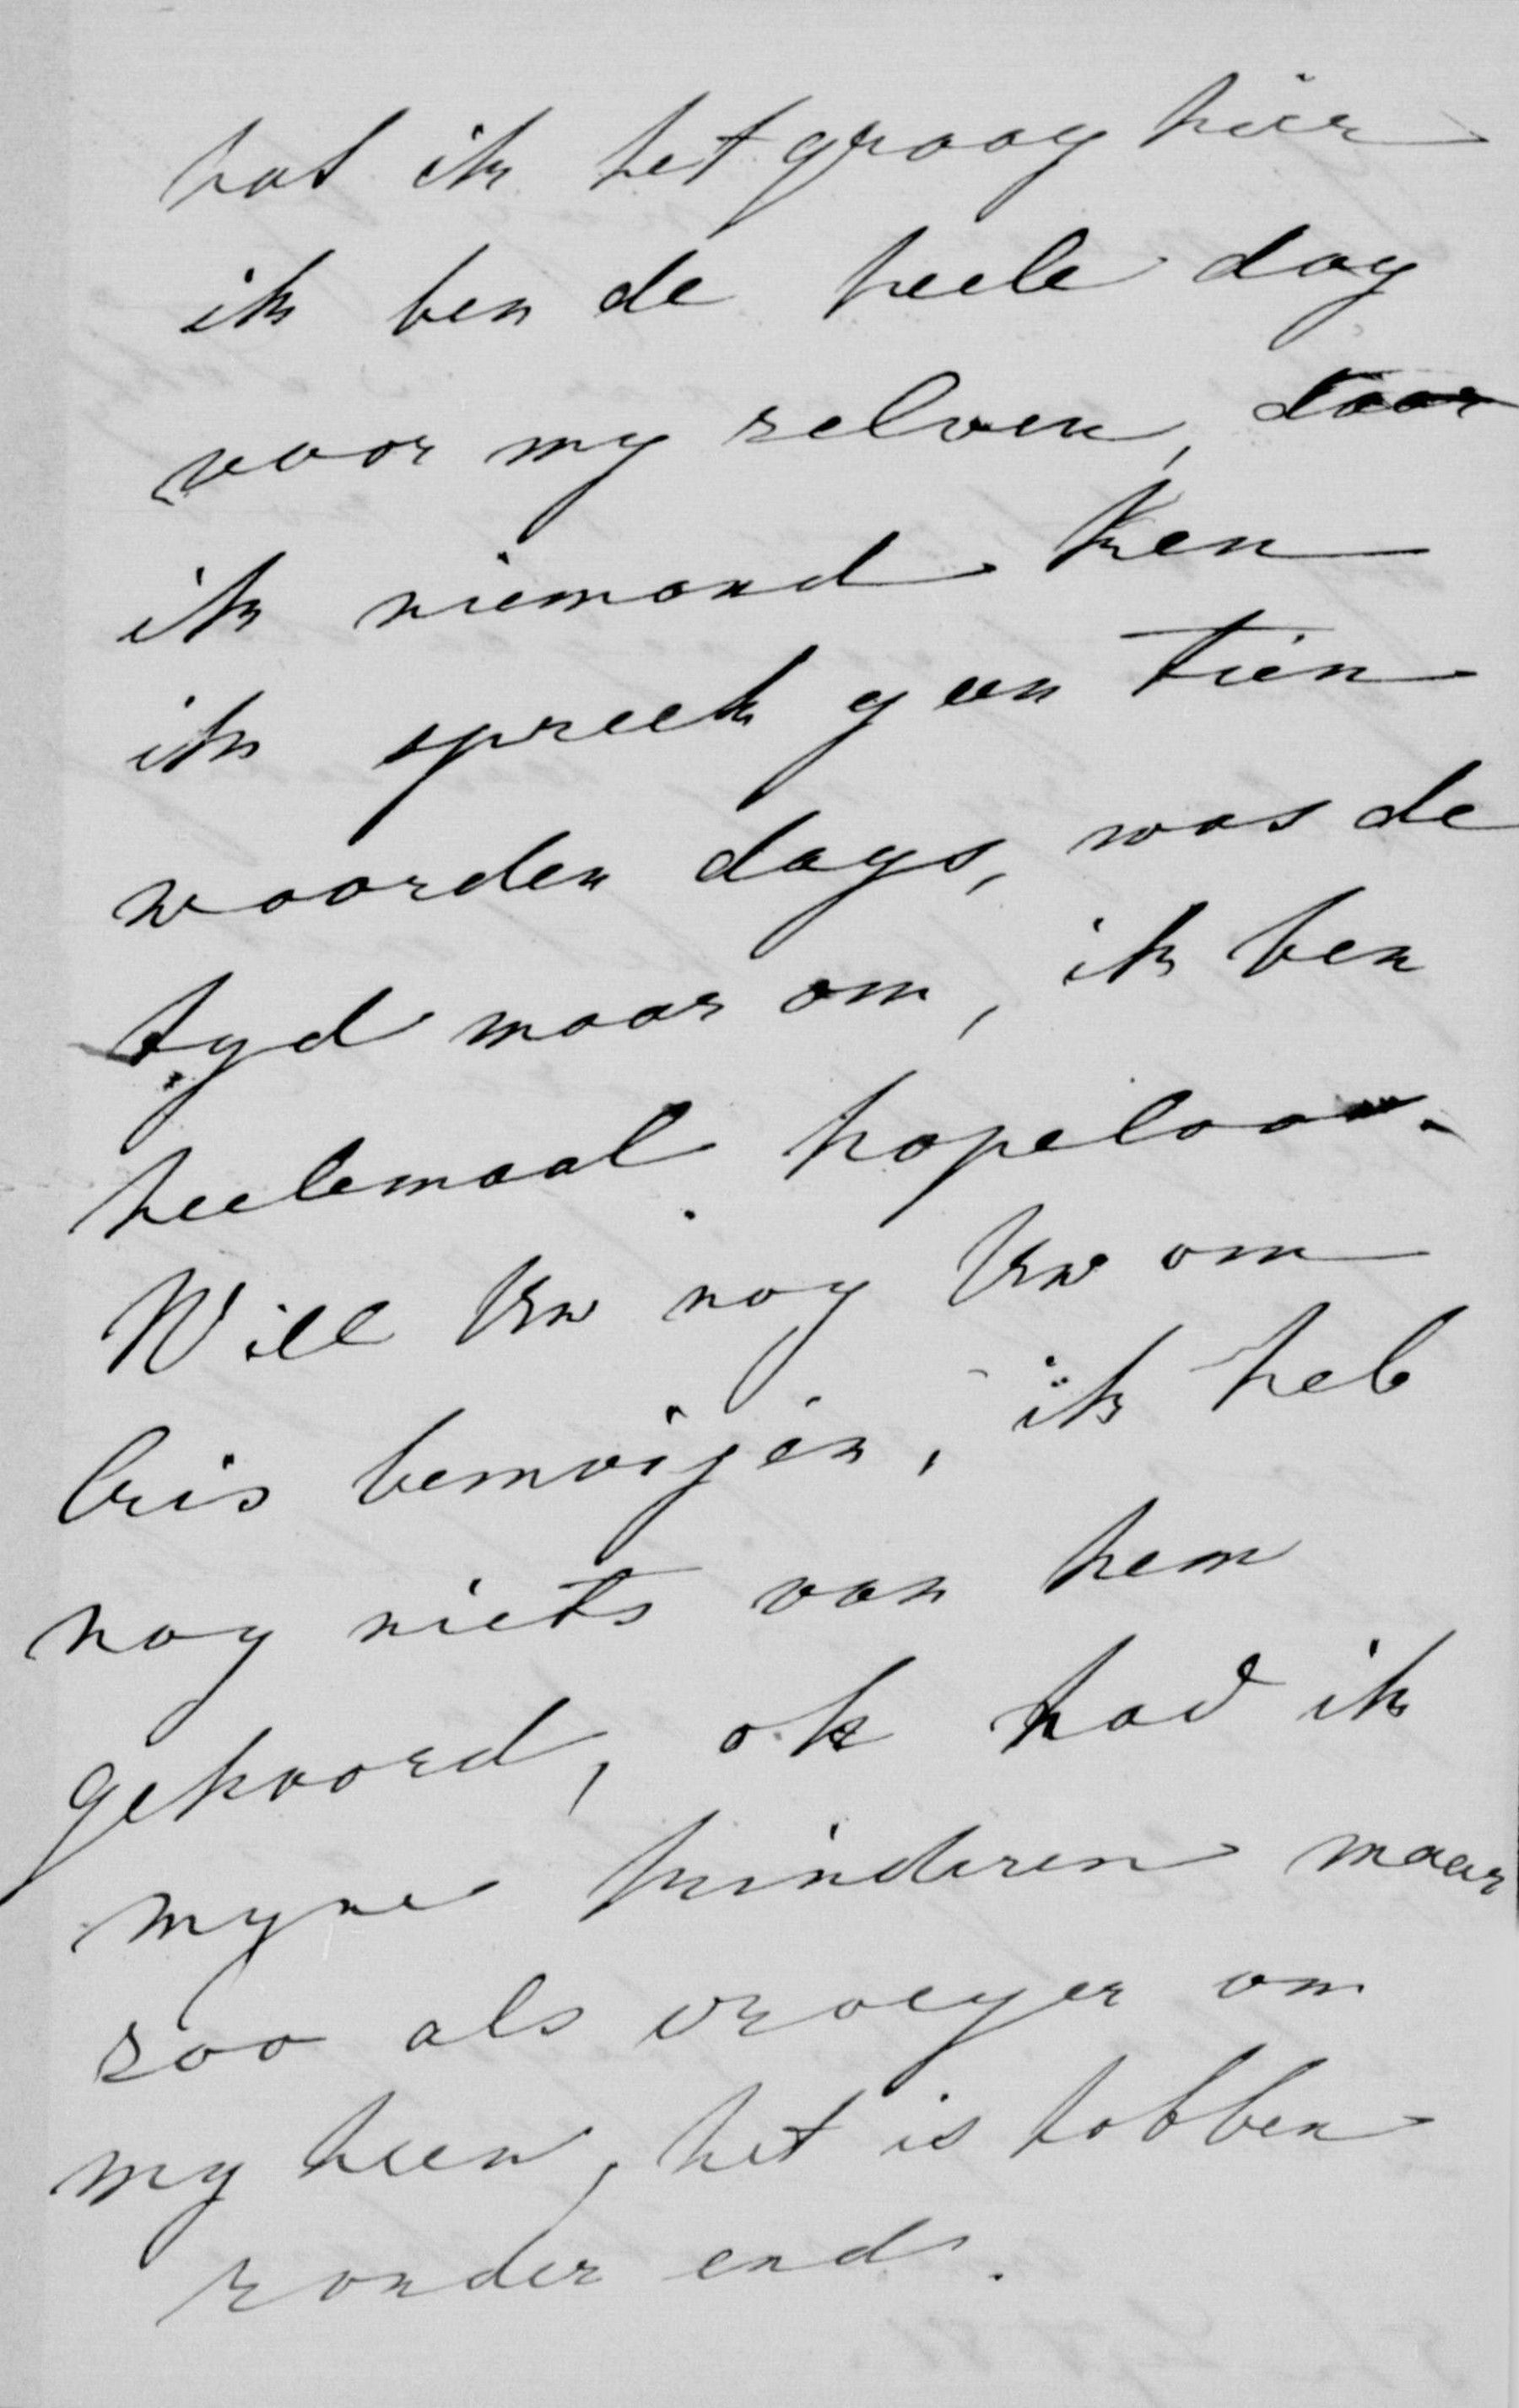 had ik het graag hier
ik ben de heele dag
voor my selven, daar
ik niemand ken
ik spreek geen tien
woorden dags, was de
tyd maar om, ik ben
heelemaal hopeloos.
Will Uw nog Uw om
bris bemoijen, ik heb
nog niets van hem
gehoord, ok had ik
myne kinderen maar
soo als vroeger om
my heen, het is tobben
zonder end.